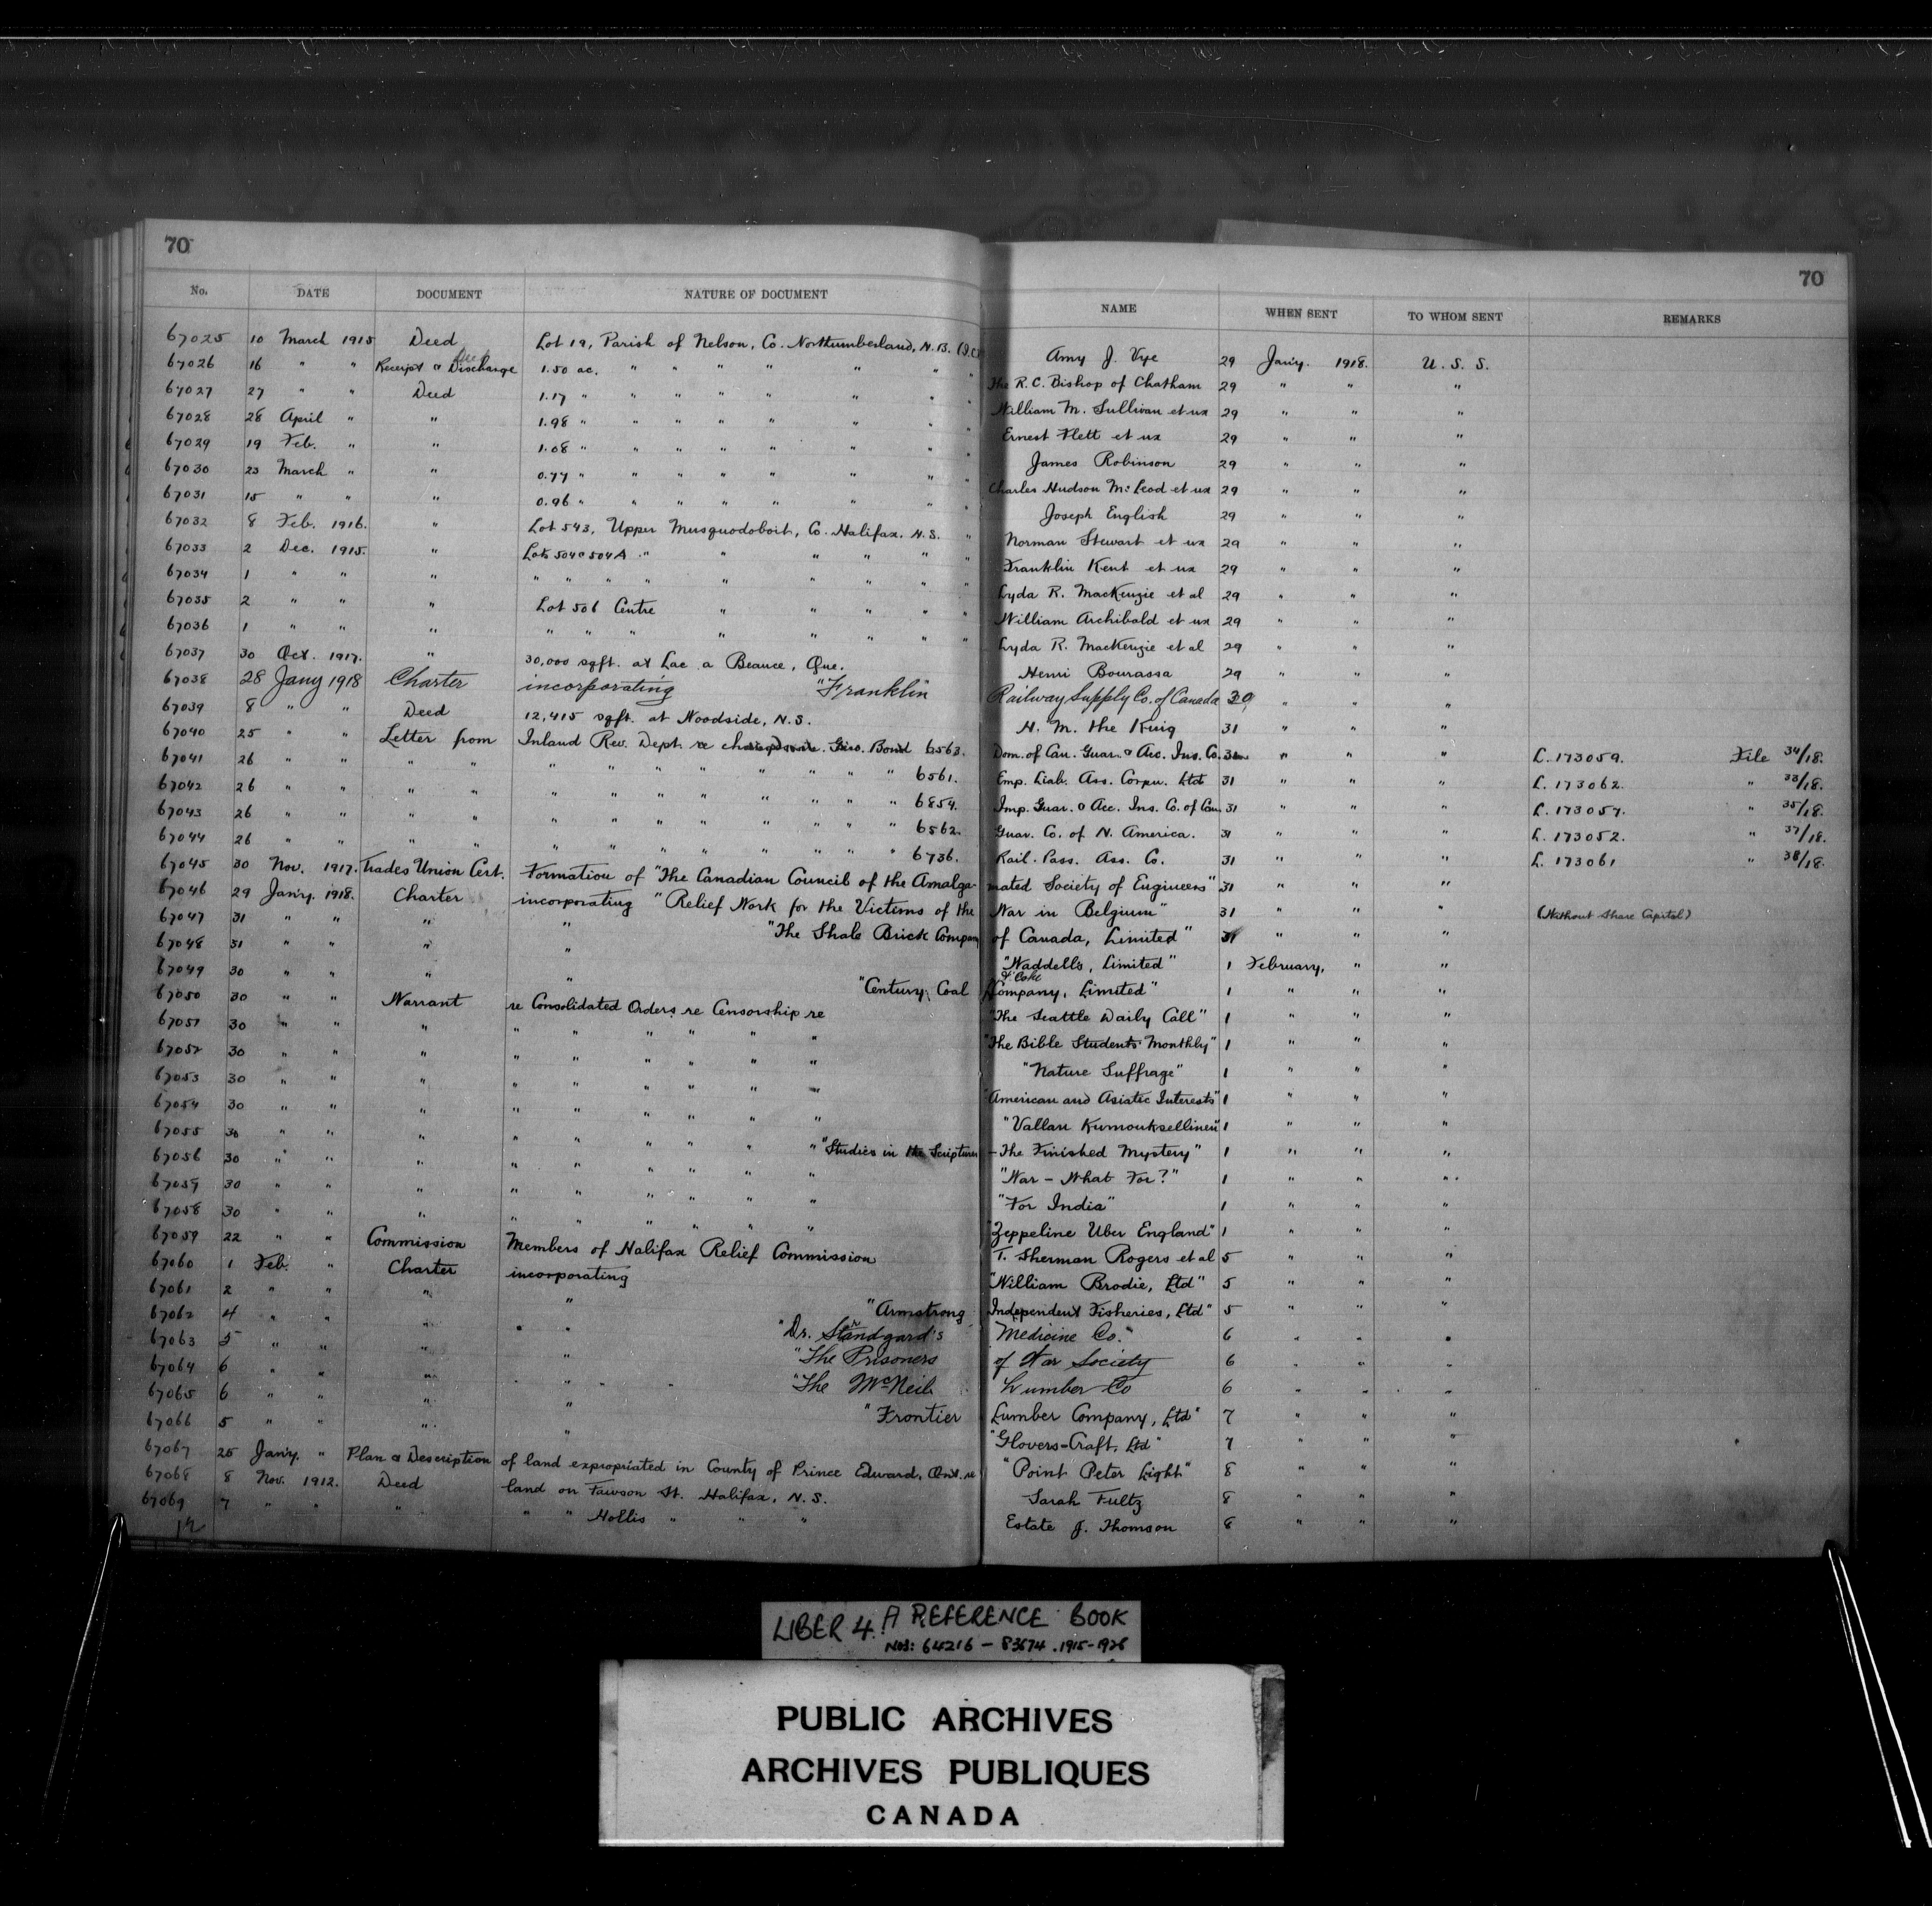 70
No. DATE DOCUMENT NATURE OF DOCUMENT
70
NAME WHEN SENT TO WHOM SENT REMARKS
67025 10 March 1915 Deed Lot 19, Parish of Nelson, Co. Northumberland, N.B. Amy J. Vye 29 Jan'y. 1918. U.S.S.
67026 16 " " Receipt & Discharge 1.50 ac. " " " " " " " The R.C. Bishop of Chatham 29 " " "
67027 27 " " Deed 1.17 " " " " " " " " William M. Sullivan et ux 29 " " "
67028 28 April " " 1.98 " " " " " " " " Ernest Flett et ux 29 " " "
67029 19 Feb. " " 1.08 " " " " " " " " James Robinson 29 " " "
67030 23 March " " 0.77 " " " " " " " " Charles Hudson McLeod et ux 29 " " "
67031 15 " " " 0.96 " " " " " " " " Joseph English 29 " " "
67032 8 Feb. 1916. " Lot 543, Upper Musquodoboit, Co. Halifax. N.S. " Norman Stewart et ux 29 " " "
67033 2 Dec. 1915. " Lots 504 & 504A " " " " " " Franklin Kent et ux 29 " " "
67034 1 " " " " " " " " " " " " Lyda R. MacKenzie et al 29 " " "
67035 2 " " " Lot 506 Centre " " " " " William Archibald et ux 29 " " "
67036 1 " " " " " " " " " " " Lyda R. MacKenzie et al 29 " " "
67037 30 Oct. 1917. " 30,000 sqft. at Lac a Beauce, Que. Henri Bourassa 29 " " "
67038 28 Jany 1918 Charter incorporating "Franklin Railway Supply Co. of Canada 30 " " "
67039 8 " " Deed 12,415 sqft. at Woodside, N.S. H.M. the King 31 " " "
67040 25 " " Letter from Inland Rev. Dept. re Bond 6563. Dom. of Can. Guar. & Acc. Ins. Co. 31 " " " L. 173059. File 34/18.
67041 26 " " " " " " " " " " " " 6561. Emp. Liab. Ass. Corpn. Ltd 31 " " " L. 173062. " 33/18.
67042 26 " " " " " " " " " " " " 6854. Imp. Guar. & Acc. Ins. Co. of Can. 31 " " " L. 173057. " 35/18.
67043 26 " " " " " " " " " " " " 6562. Guar. Co. of N. America. 31 " " " L. 173052. " 37/18.
67044 26 " " " " " " " " " " " " 6736. Rail. Pass. Ass. Co. 31 " " " L. 173061 " 38/18.
67045 30 Nov. 1917. Trades Union Cert. Formation of "The Canadian Council of the Amalgamated Society of Engineers" 31 " " "
67046 29 Jan'y. 1918. Charter incorporating "Relief Work for the Victims of the War in Belgium" 31 " " " (Without Share Capital)
67047 31 " " " " "The Shale Brick Company of Canada, Limited" 31 " " "
67048 31 " " " " "Waddells, Limited" 1 February, " "
67049 30 " " " " "Century Coal & Coke Company, Limited" 1 " " "
67050 30 " " Warrant re Consolidated Orders re Censorship re "The Seattle Daily Call" 1 " " "
67051 30 " " " " " " " " " "The Bible Students Monthly" 1 " " "
67052 30 " " " " " " " " " "Nature Suffrage" 1 " " "
67053 30 " " " " " " " " " "American and Asiatic Interests" 1 " " "
67054 30 " " " " " " " " " "Vallan Kumouksellinen" 1 " " "
67055 30 " " " " " " " " " "Studies in the Scriptures - The Finished Mystery" 1 " " "
67056 30 " " " " " " " " " "War - What For?" 1 " " "
67057 30 " " " " " " " " " "For India" 1 " " "
67058 30 " " " " " " " " " "Zeppeline Uber England" 1 " " "
67059 22 " " Commission Members of Halifax Relief Commission T. Sherman Rogers et al 5 " " "
67060 1 Feb. " Charter incorporating "William Brodie, Ltd" 5 " " "
67061 2 " " " " "Armstrong Independent Fisheries, Ltd" 5 " " "
67062 4 " " " " "Dr. Standgard's Medicine Co." 6 " " "
67063 5 " " " " "The Prisoners of War Society 6 " " "
67064 6 " " " " "The McNeil Lumber Co 6 " " "
67065 6 " " " " "Frontier Lumber Company, Ltd" 7 " " "
67066 5 " " " " "Glovers-Craft, Ltd" 7 " " "
67067 25 Jan'y. " Plan & Description of land expropriated in County of Prince Edward, Ont. re "Point Peter Light" 8 " " "
67068 8 Nov. 1912. Deed land on Fawson St. Halifax, N.S. Sarah Fultz 8 " " "
67069 7 " " " " " Hollis " " " Estate J. Thomson 8 " " "
LIBER 4. A REFERENCE BOOK
NOS: 64216 - 83674 . 1915-1928
PUBLIC ARCHIVES
ARCHIVES PUBLIQUES
CANADA